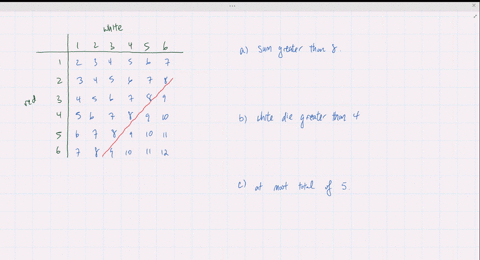 white
1 2 3 4 5 6
1 2 3 4 5 6 7
2 3 4 5 6 7 8
red
3 4 5 6 7 8 9
4 5 6 7 8 9 10
5 6 7 8 9 10 11
6 7 8 9 10 11 12
a) sum greater than 8.
b) white die greater than 4
c) at most total of 5